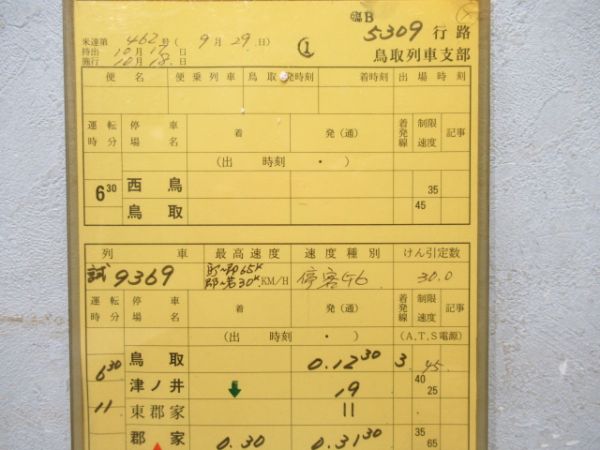 臨B 5309 行路
米達第 462号 ( 9月 29.日)
持出 10月 17日 ① 鳥取列車支部
施行 10月 18.日
便 名 便 乗 列 車 鳥 取 発時刻 着時刻 出 場 時 刻
運転時分 停車場名 着 発(通) 着発線 制限速度 記事
(出 時刻 ・ )
6 30 西 鳥 35
鳥 取 45
列 車 最 高 速 度 速 度 種 別 けん引定数
試9369 鳥~郡65K 郡~若30K KM/H 停客G6 30.0
運転時分 停車場名 着 発(通) 着発線 制限速度 記事
(出 時刻 ・ ) (A.T.S電源)
6 30 鳥 取 0.12 30 3 45.
津ノ井 ↓ 19 40 25
11 東郡家 11
郡 家 0.30 0.31 30 35 65